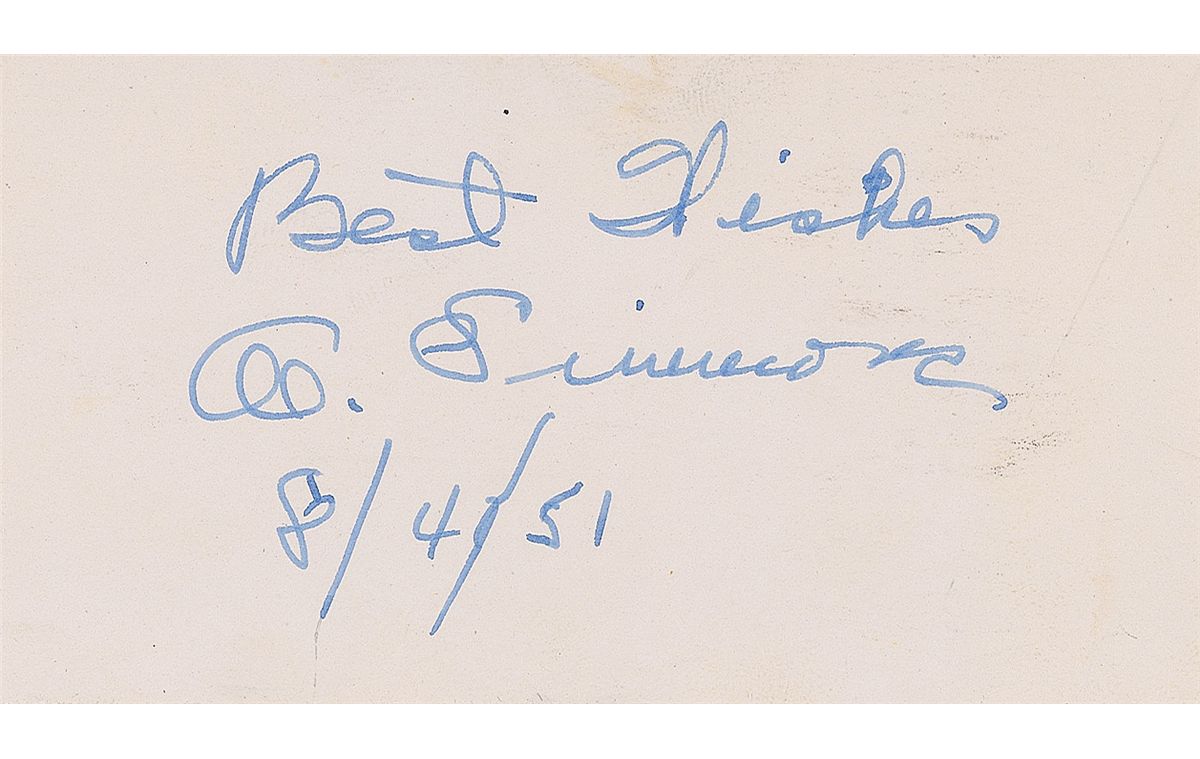 Best Wishes
Al. Simmons
8/4/51